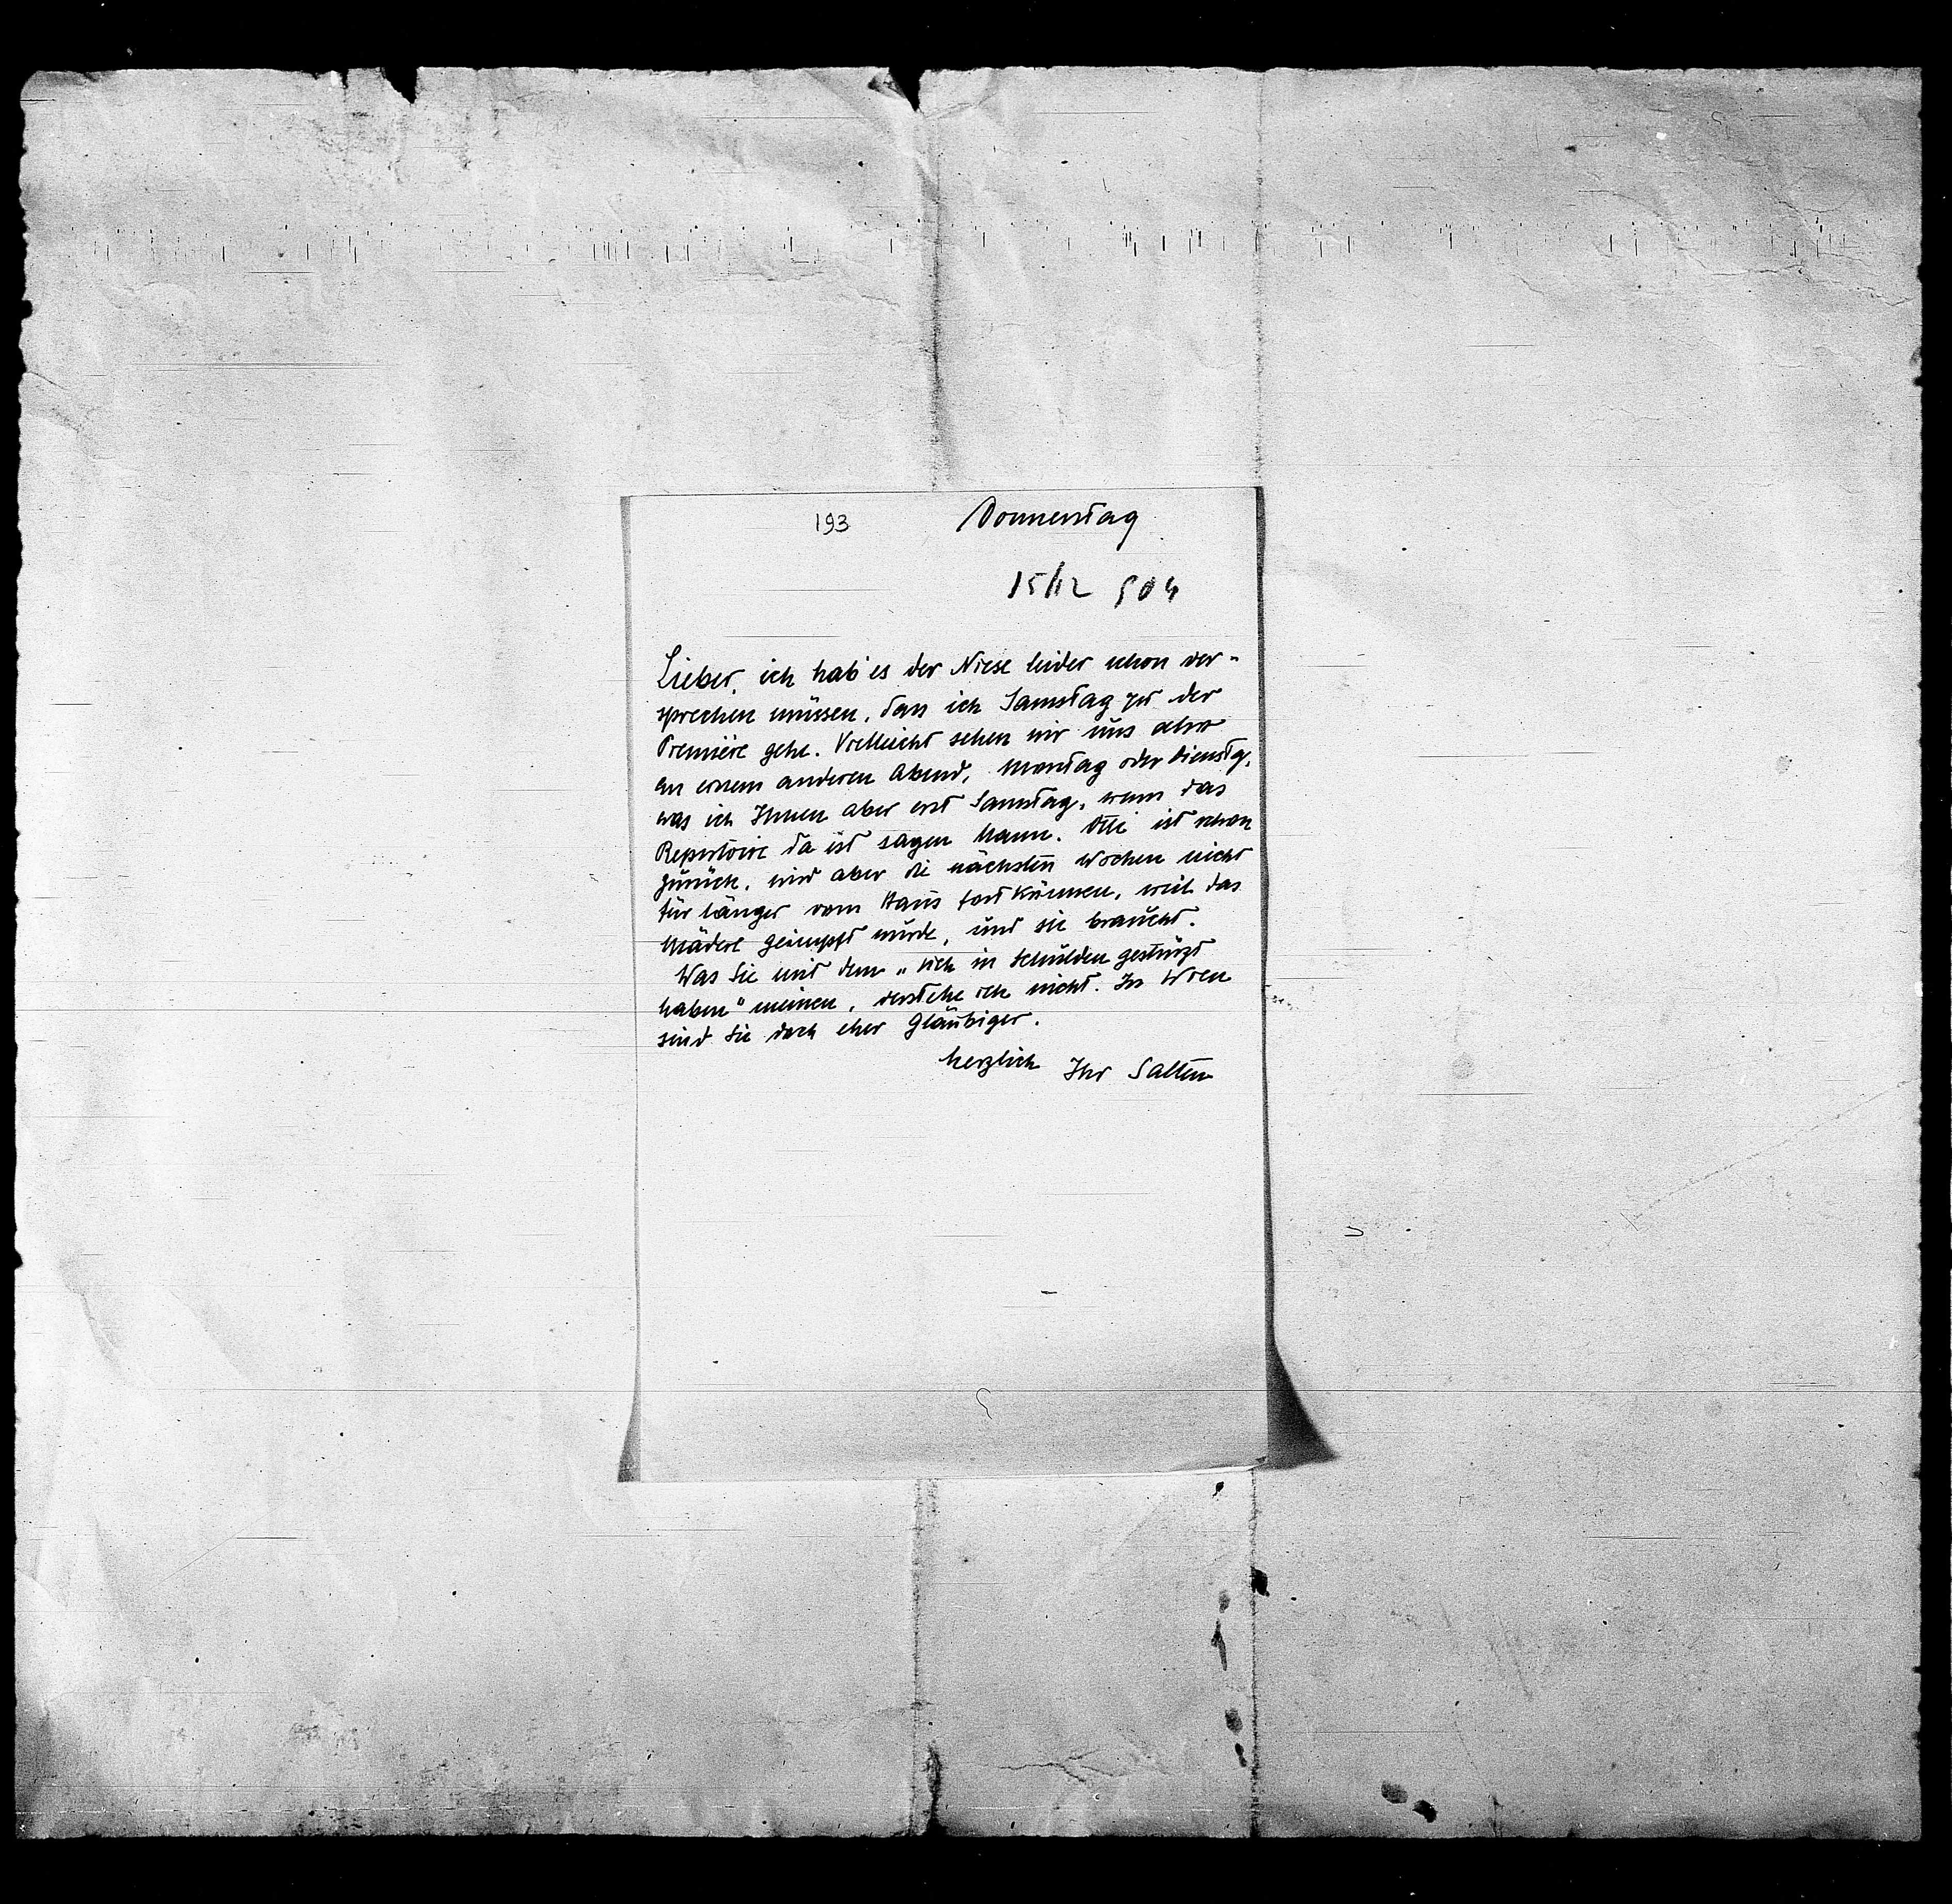 193
Donnerstag
15/12 904
Lieber, ich hab' es der Niese leider schon ver-
sprechen müssen, dass ich Samstag zu der
Première gehe. Vielleicht sehen wir uns also
an einem anderen Abend, Montag oder Dienstg,
was ich Ihnen aber erst Samstag, wenn das
Repertoire da ist sagen kann. Otti ist schon
zurück, wird aber die nächsten Wochen nicht
für länger vom Haus fort können, weil das
Mäderl geimpft wurde, und sie braucht.
Was Sie mit dem „sich in Schulden gestürzt
haben" meinen, verstehe ich nicht. In Wien
sind Sie doch eher Gläubiger.
herzlich Ihr Salten